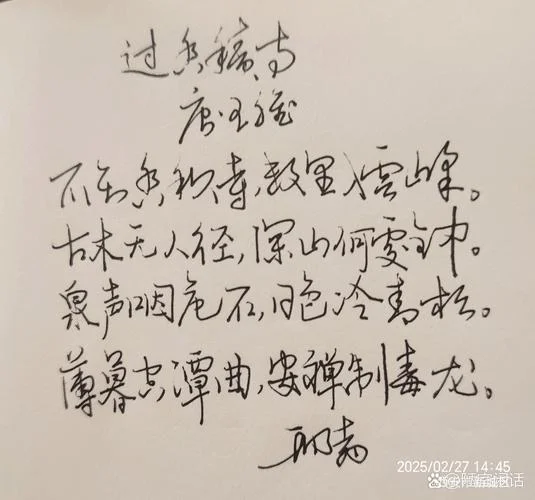 过香积寺
唐王维
不知香积寺，数里入云峰。
古木无人径，深山何处钟。
泉声咽危石，日色冷青松。
薄暮空潭曲，安禅制毒龙。
2025/02/27 14:45